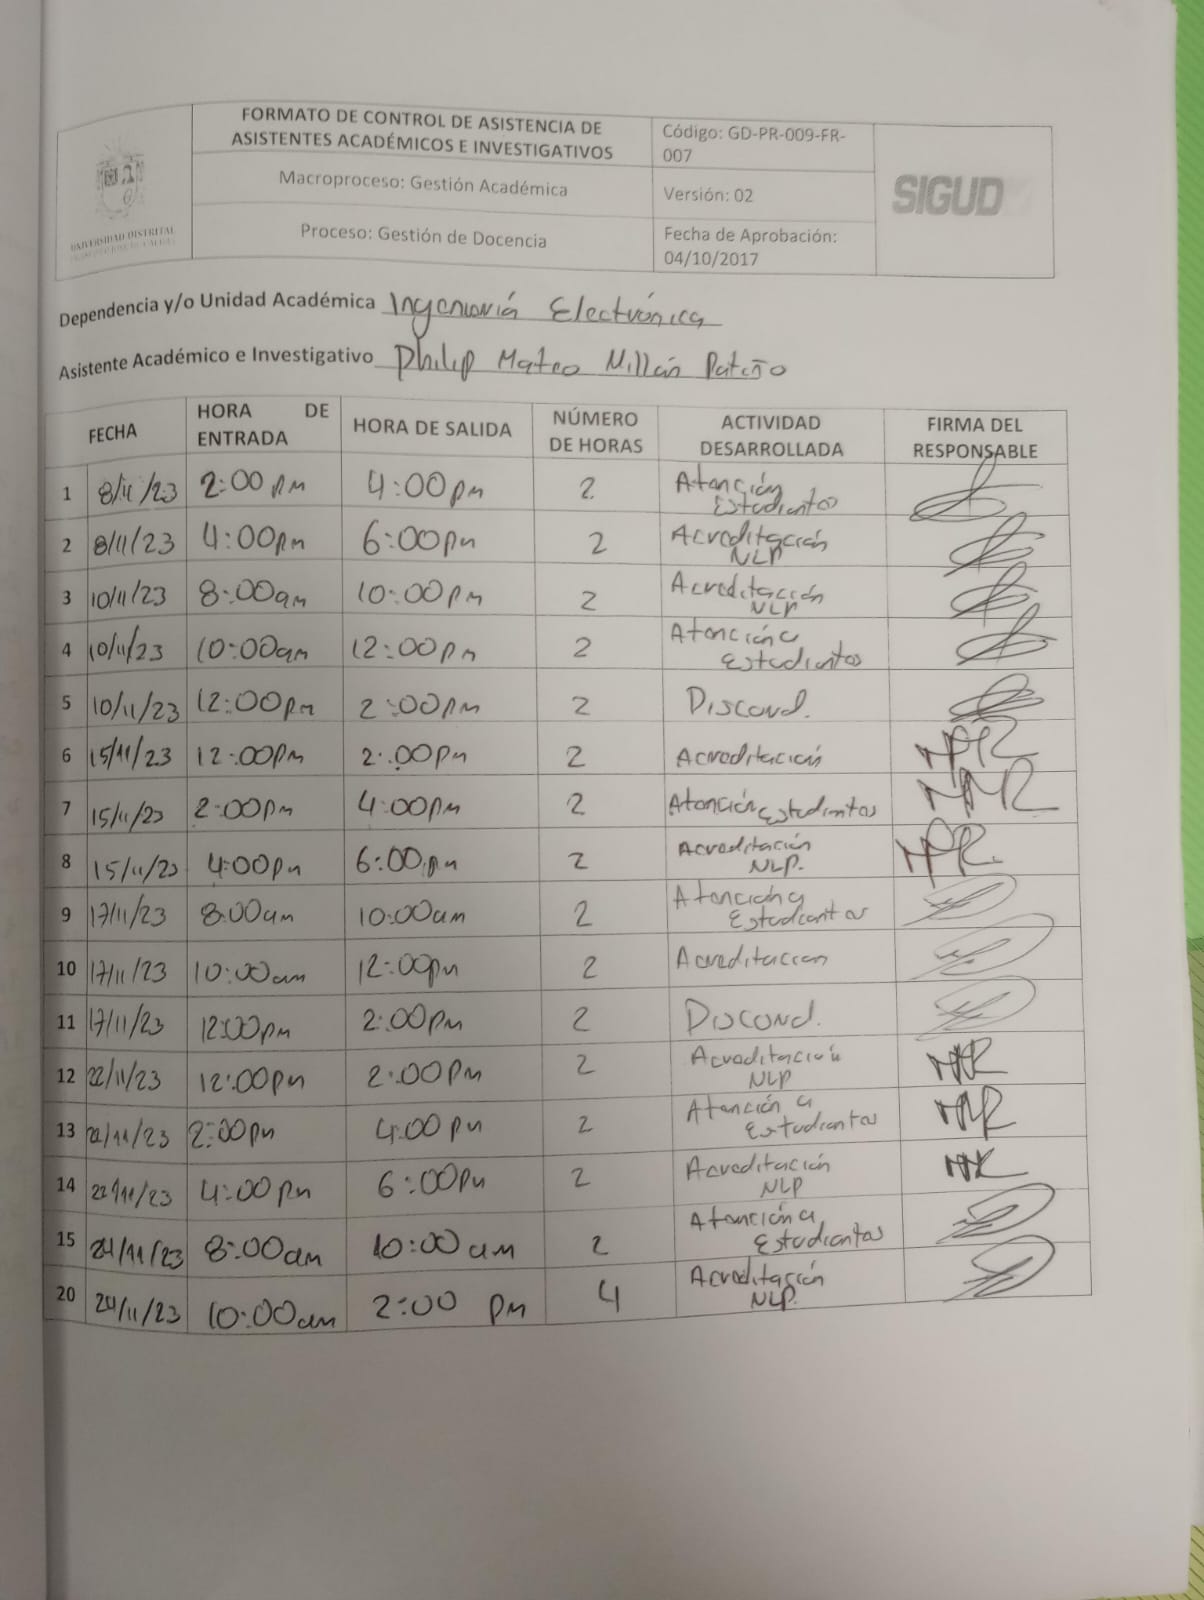 FORMATO DE CONTROL DE ASISTENCIA DE
ASISTENTES ACADÉMICOS E INVESTIGATIVOS
Código: GD-PR-009-FR-
007
Macroproceso: Gestión Académica
Versión: 02
SIGUD
Proceso: Gestión de Docencia
Fecha de Aprobación:
04/10/2017
UNIVERSIDAD DISTRITAL
Dependencia y/o Unidad Académica Ingeniería Electrónica
Asistente Académico e Investigativo Philip Mateo Millán Patiño
FECHA HORA DE ENTRADA HORA DE SALIDA NÚMERO DE HORAS ACTIVIDAD DESARROLLADA FIRMA DEL RESPONSABLE
1 8/11/23 2:00 pm 4:00pm 2 Atención Estudiantes
2 8/11/23 4:00pm 6:00pm 2 Acreditación NLP
3 10/11/23 8:00am 10:00pm 2 Acreditación NLP
4 10/11/23 10:00am 12:00pm 2 Atención a Estudiantes
5 10/11/23 12:00pm 2:00pm 2 Discond.
6 15/11/23 12:00pm 2:00pm 2 Acreditación
7 15/11/23 2:00pm 4:00pm 2 Atención Estudiantes
8 15/11/23 4:00pm 6:00pm 2 Acreditación NLP.
9 17/11/23 8:00am 10:00am 2 Atención a Estudiantes
10 17/11/23 10:00am 12:00pm 2 Acreditacion
11 17/11/23 12:00pm 2:00pm 2 Discond.
12 22/11/23 12:00pm 2:00pm 2 Acreditación NLP
13 22/11/23 2:00pm 4:00 pm 2 Atención a Estudiantes
14 22/11/23 4:00pm 6:00pm 2 Acreditación NLP
15 24/11/23 8:00am 10:00 am 2 Atención a Estudiantes
20 24/11/23 10:00am 2:00 pm 4 Acreditación NLP.